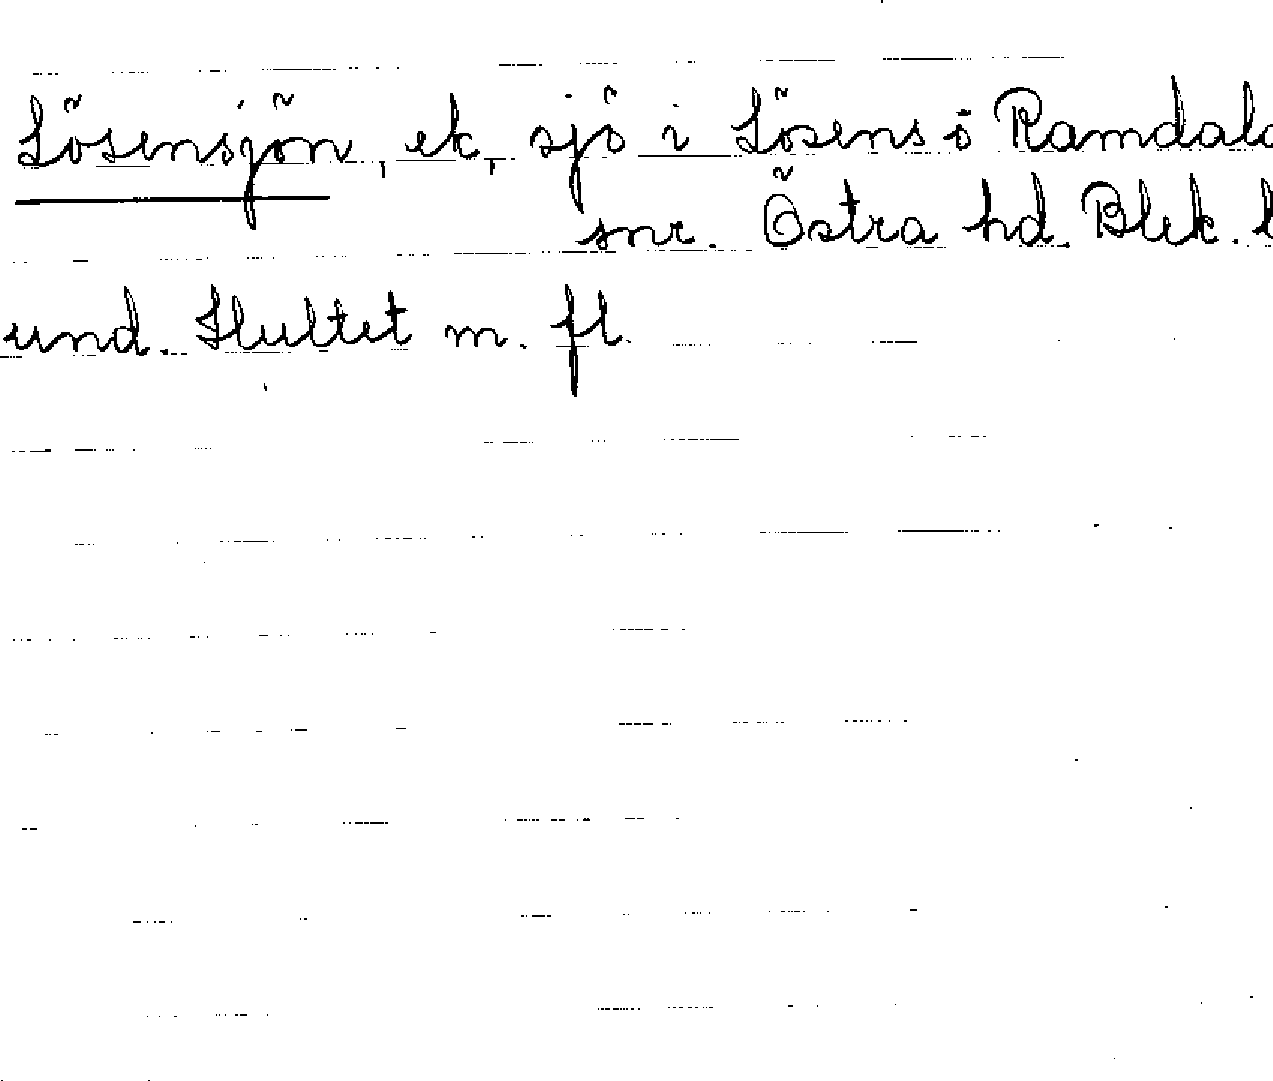 Lösensjön, ek, sjö i Lösens o Ramdala
snr. Östra hd. Blek. l
und. Slultet m. fl.